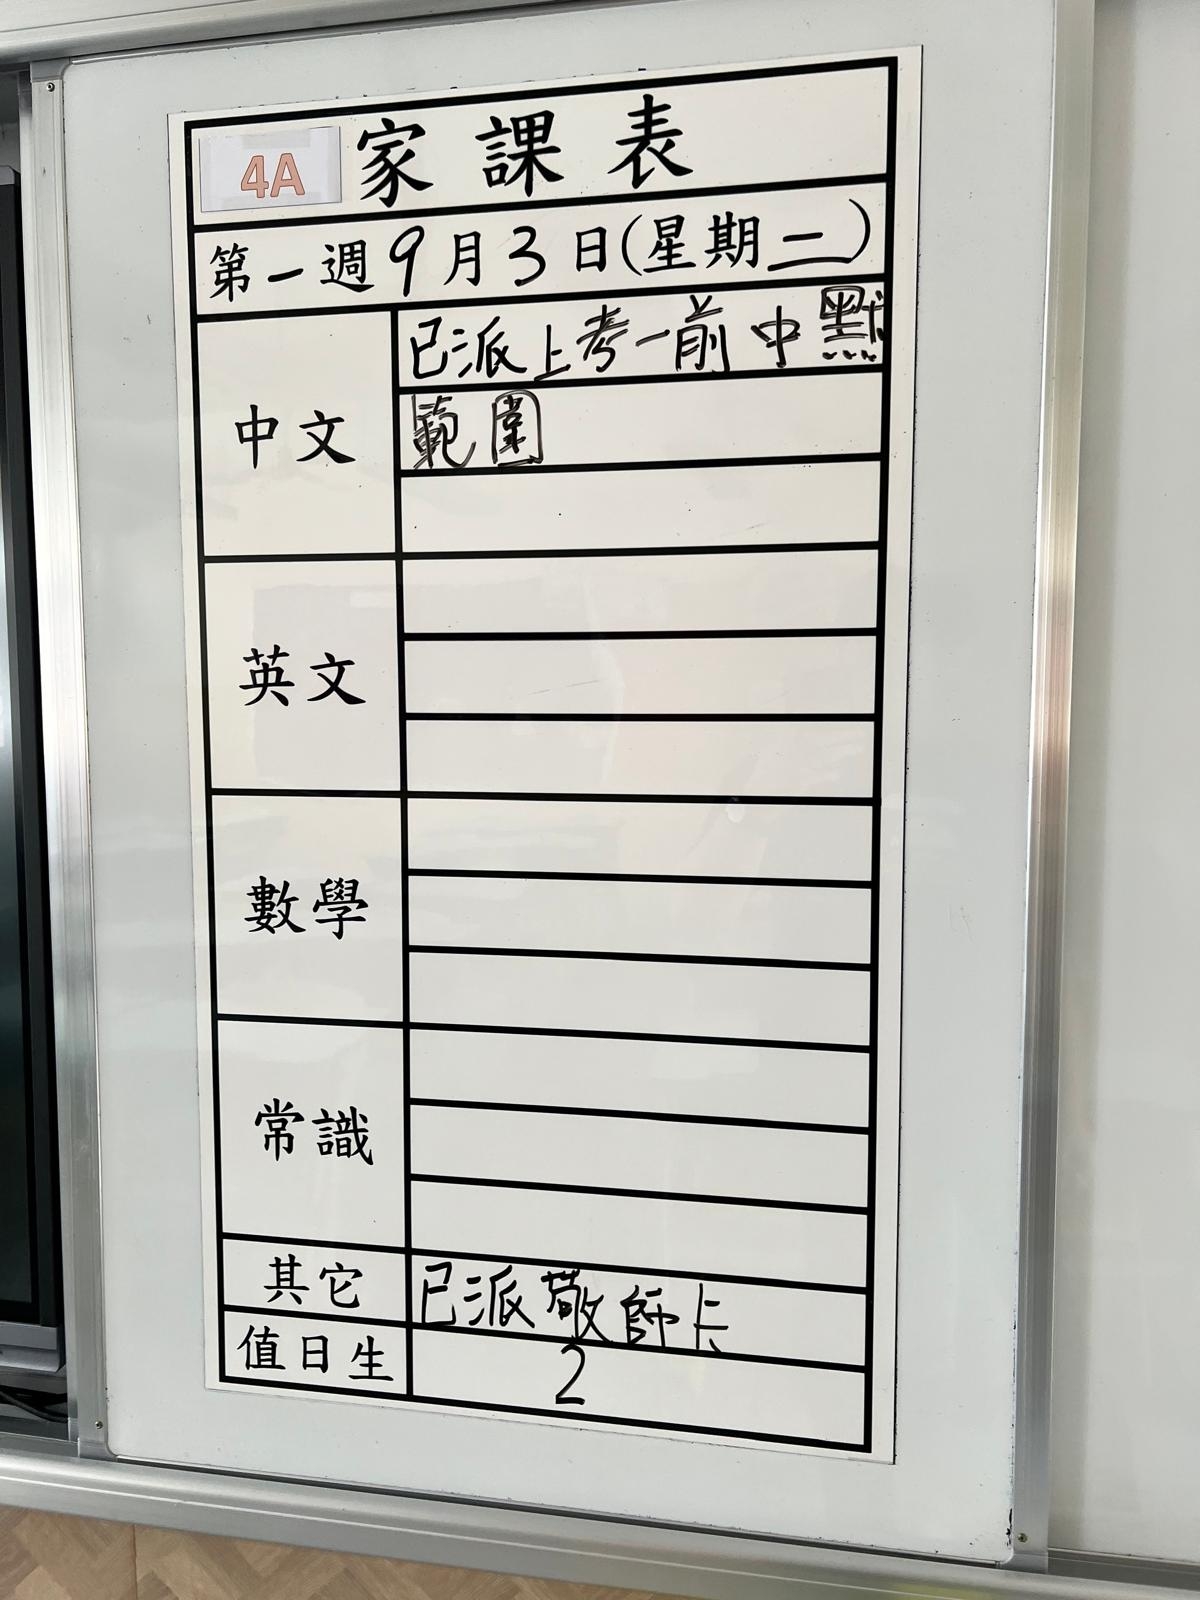 4A 家課表
第一週9月3日(星期二)
中文
已派上考一前中默
範圍
英文
數學
常識
其它 已派敬師卡
值日生 2